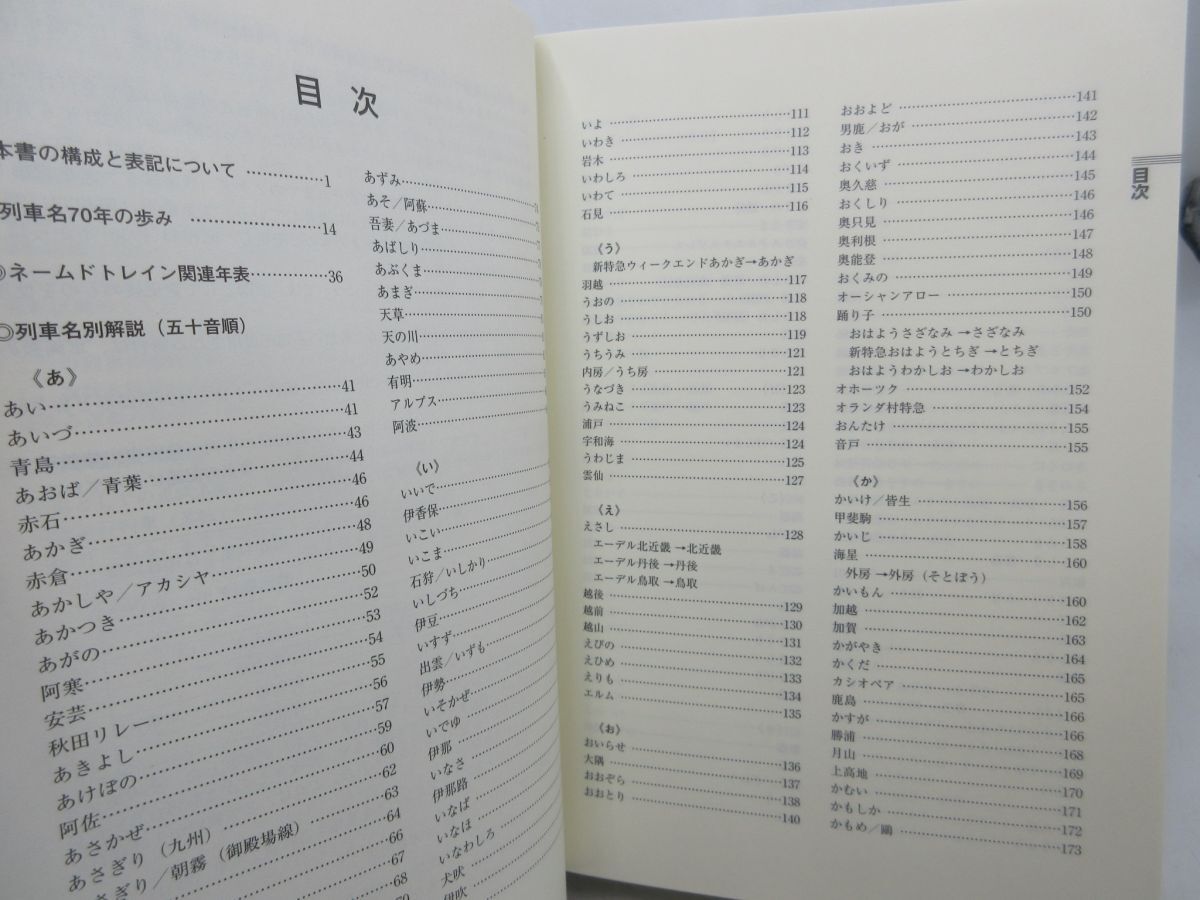 目次
本書の構成と表記について …………1
列車名70年の歩み …………14
◎ネームドトレイン関連年表…………36
◎列車名別解説（五十音順）
《あ》
あい…………41
あいづ…………41
青島…………43
あおば／青葉…………44
赤石…………46
あかぎ…………46
赤倉…………48
あかしや／アカシヤ…………49
あかつき…………50
あがの…………52
阿寒…………53
安芸…………54
秋田リレー…………55
あきよし…………56
あけぼの…………57
阿佐…………59
あさかぜ…………60
あさぎり（九州）…………62
さぎり／朝霧（御殿場線）…………63
64
66
67
68
70
あずみ…………
あそ／阿蘇…………
吾妻／あづま…………
あばしり…………
あぶくま…………
あまぎ…………
天草…………
天の川…………
あやめ…………
有明…………
アルプス…………
阿波…………
《い》
いいで…………
伊香保…………
いこい…………
いこま…………
石狩／いしかり…………
いしづち…………
伊豆…………
いすず…………
出雲／いずも…………
伊勢…………
いそかぜ…………
いでゆ…………
伊那…………
いなさ…………
伊那路…………
いなば…………
いなほ…………
いなわしろ…………
犬吠…………
伊吹…………
いよ…………111
いわき…………112
岩木…………113
いわしろ…………114
いわて…………115
石見…………116
《う》
新特急ウィークエンドあかぎ→あかぎ
羽越…………117
うおの…………118
うしお…………118
うずしお…………119
うちうみ…………121
内房／うち房…………121
うなづき…………123
うみねこ…………123
浦戸…………124
宇和海…………124
うわじま…………125
雲仙…………127
《え》
えさし…………128
エーデル北近畿→北近畿
エーデル丹後→丹後
エーデル鳥取→鳥取
越後…………129
越前…………130
越山…………131
えびの…………132
えひめ…………133
えりも…………134
エルム…………135
《お》
おいらせ…………136
大隅…………137
おおぞら…………138
おおとり…………140
おおよど…………141
男鹿／おが…………142
おき…………143
おくいず…………144
奥久慈…………145
おくしり…………146
奥只見…………146
奥利根…………147
奥能登…………148
おくみの…………149
オーシャンアロー…………150
踊り子…………150
おはようさざなみ→さざなみ
新特急おはようとちぎ→とちぎ
おはようわかしお→わかしお
オホーツク…………152
オランダ村特急…………154
おんたけ…………155
音戸…………155
《か》
かいけ／皆生…………156
甲斐駒…………157
かいじ…………158
海星…………160
外房→外房（そとぼう）
かいもん…………160
加越…………162
加賀…………163
かがやき…………164
かくだ…………165
カシオペア…………165
鹿島…………166
かすが…………166
勝浦…………168
月山…………169
上高地…………170
かむい…………171
かもしか…………172
かもめ／鷗…………173
目次